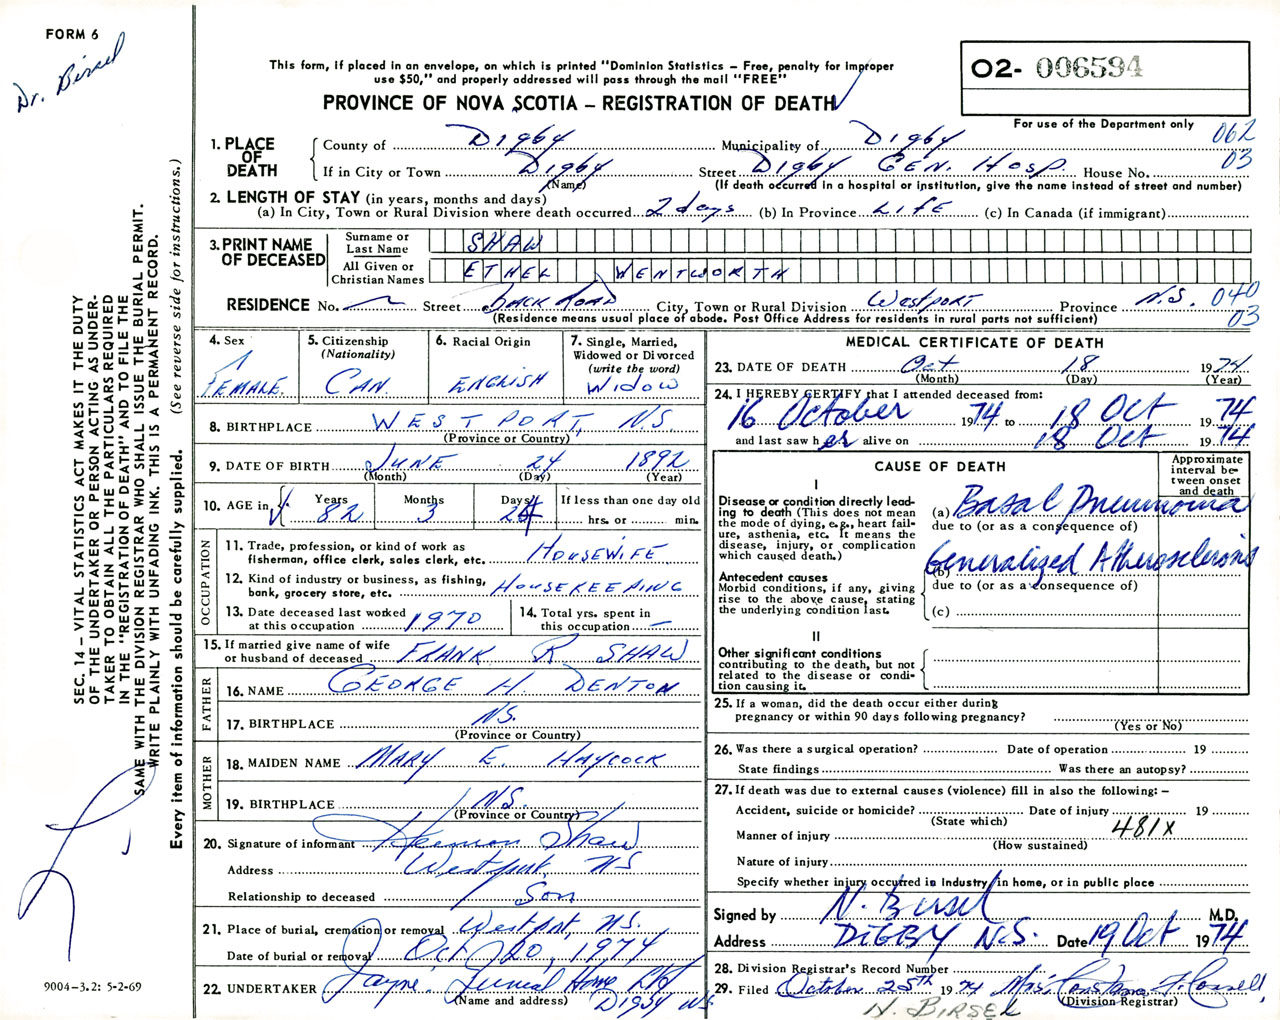 FORM 6
Dr. Birsel
This form, if placed in an envelope, on which is printed "Dominion Statistics – Free, penalty for improper
use $50," and properly addressed will pass through the mail "FREE"
PROVINCE OF NOVA SCOTIA – REGISTRATION OF DEATH
O2- 006594
For use of the Department only
062
03
1. PLACE OF DEATH
County of Digby Municipality of Digby
If in City or Town Digby Street Digby Gen. Hosp. House No.
(Name) (If death occurred in a hospital or institution, give the name instead of street and number)
2. LENGTH OF STAY (in years, months and days)
(a) In City, Town or Rural Division where death occurred 2 days (b) In Province LIFE (c) In Canada (if immigrant)
3. PRINT NAME OF DECEASED
Surname or Last Name SHAW
All Given or Christian Names ETHEL WENTWORTH
RESIDENCE No. Street Back Road City, Town or Rural Division Westport Province N.S. 040
(Residence means usual place of abode. Post Office Address for residents in rural parts not sufficient) 03
4. Sex
FEMALE
5. Citizenship
(Nationality)
CAN.
6. Racial Origin
ENGLISH
7. Single, Married,
Widowed or Divorced
(write the word)
WIDOW
8. BIRTHPLACE WESTPORT, N.S
(Province or Country)
9. DATE OF BIRTH JUNE 24 1892
(Month) (Day) (Year)
10. AGE in
Years Months Days If less than one day old
82 3 24 hrs. or min.
OCCUPATION
11. Trade, profession, or kind of work as
fisherman, office clerk, sales clerk, etc. HOUSEWIFE
12. Kind of industry or business, as fishing,
bank, grocery store, etc. HOUSEKEEPING
13. Date deceased last worked
at this occupation 1970
14. Total yrs. spent in
this occupation –
15. If married give name of wife
or husband of deceased FRANK R SHAW
FATHER
16. NAME GEORGE H. DENTON
17. BIRTHPLACE N.S.
(Province or Country)
MOTHER
18. MAIDEN NAME MARY E. HAYCOCK
19. BIRTHPLACE N.S.
(Province or Country)
20. Signature of informant Herman Shaw
Address Westport, NS
Relationship to deceased Son
21. Place of burial, cremation or removal Westport, N.S.
Date of burial or removal Oct 20, 1974
22. UNDERTAKER Jayne Funeral Home Ltd
(Name and address) Digby NS
MEDICAL CERTIFICATE OF DEATH
23. DATE OF DEATH Oct 18 1974
(Month) (Day) (Year)
24. I HEREBY CERTIFY that I attended deceased from:
16 October 1974 to 18 Oct 1974
and last saw her alive on 18 Oct 1974
CAUSE OF DEATH
Approximate
interval be-
tween onset
and death
I
Disease or condition directly lead-
ing to death (This does not mean
the mode of dying, e.g., heart fail-
ure, asthenia, etc. It means the
disease, injury, or complication
which caused death.)
(a) Basal Pneumonia
due to (or as a consequence of)
Antecedent causes
Morbid conditions, if any, giving
rise to the above cause, stating
the underlying condition last.
(b) Generalized Atherosclerosis
due to (or as a consequence of)
(c)
II
Other significant conditions
contributing to the death, but not
related to the disease or condi-
tion causing it.
25. If a woman, did the death occur either during
pregnancy or within 90 days following pregnancy?
(Yes or No)
26. Was there a surgical operation? Date of operation 19
State findings Was there an autopsy?
27. If death was due to external causes (violence) fill in also the following: –
Accident, suicide or homicide? Date of injury 19
(State which) 481X
Manner of injury
(How sustained)
Nature of injury
Specify whether injury occurred in industry, in home, or in public place
Signed by N. Birsel M.D.
Address DIGBY N.S. Date 19 Oct 1974
28. Division Registrar's Record Number
29. Filed October 25th 1974 Mrs.
(Division Registrar)
N. BIRSEL
SEC. 14 – VITAL STATISTICS ACT MAKES IT THE DUTY
OF THE UNDERTAKER OR PERSON ACTING AS UNDER-
TAKER TO OBTAIN ALL THE PARTICULARS REQUIRED
IN THE "REGISTRATION OF DEATH" AND TO FILE THE
SAME WITH THE DIVISION REGISTRAR WHO SHALL ISSUE THE BURIAL PERMIT.
WRITE PLAINLY WITH UNFADING INK. THIS IS A PERMANENT RECORD.
Every item of information should be carefully supplied. (See reverse side for instructions.)
9004-3.2: 5-2-69